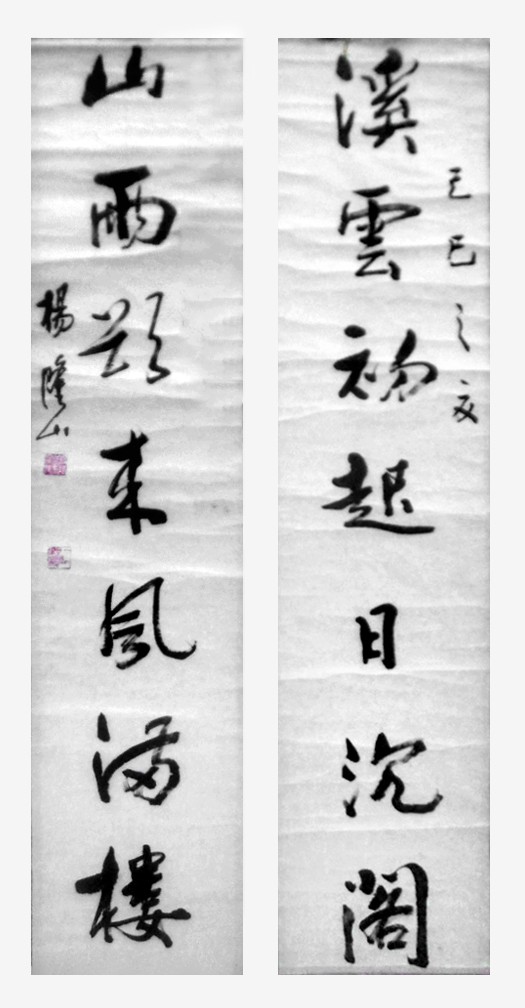 溪雲初起日沉閣
己巳之夏
山雨欲来風满樓
楊隆山